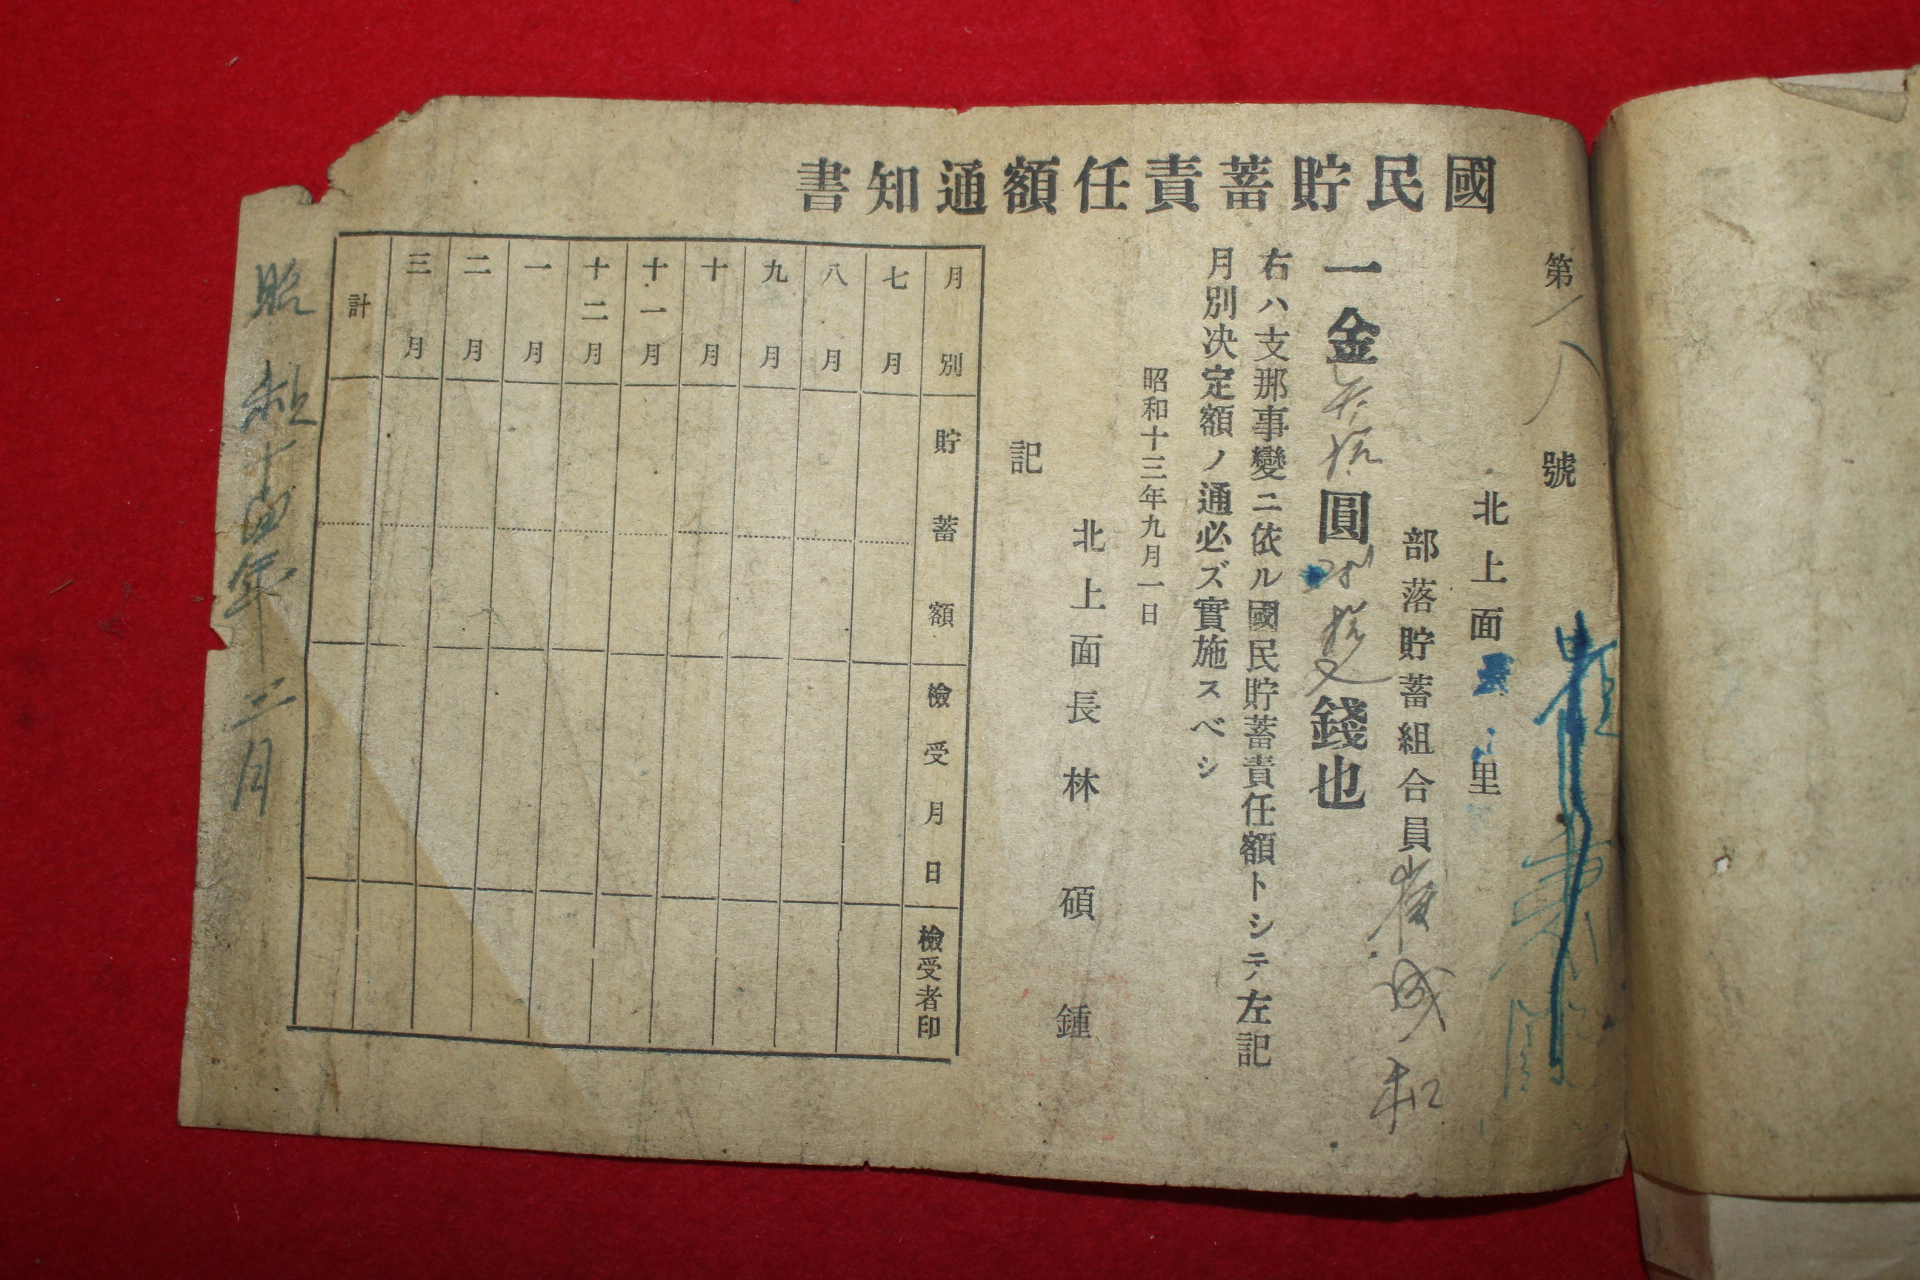 國民貯蓄責任額通知書
第 八 號
北上面 里
部落貯蓄組合員 崔成和
一金 拾圓 拾 錢也
右ハ支那事變ニ依ル國民貯蓄責任額トシテ左記
月別決定額ノ通必ズ實施スベシ
昭和十三年九月一日
北上面長 林碩鍾
記
月別 貯蓄額 檢受月日 檢受者印
七月
八月
九月
十月
十一月
十二月
一月
二月
三月
計
昭和十四年二月